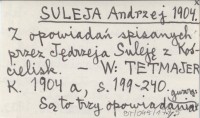 SULEJA Andrzej 1904.
Z opowiadań spisanych
przez Jędrzeja Suleję z Koś-
cielisk. - W: TETMAJER
K. 1904 a, s. 199-240.
gwarą.
Są to trzy opowiadania